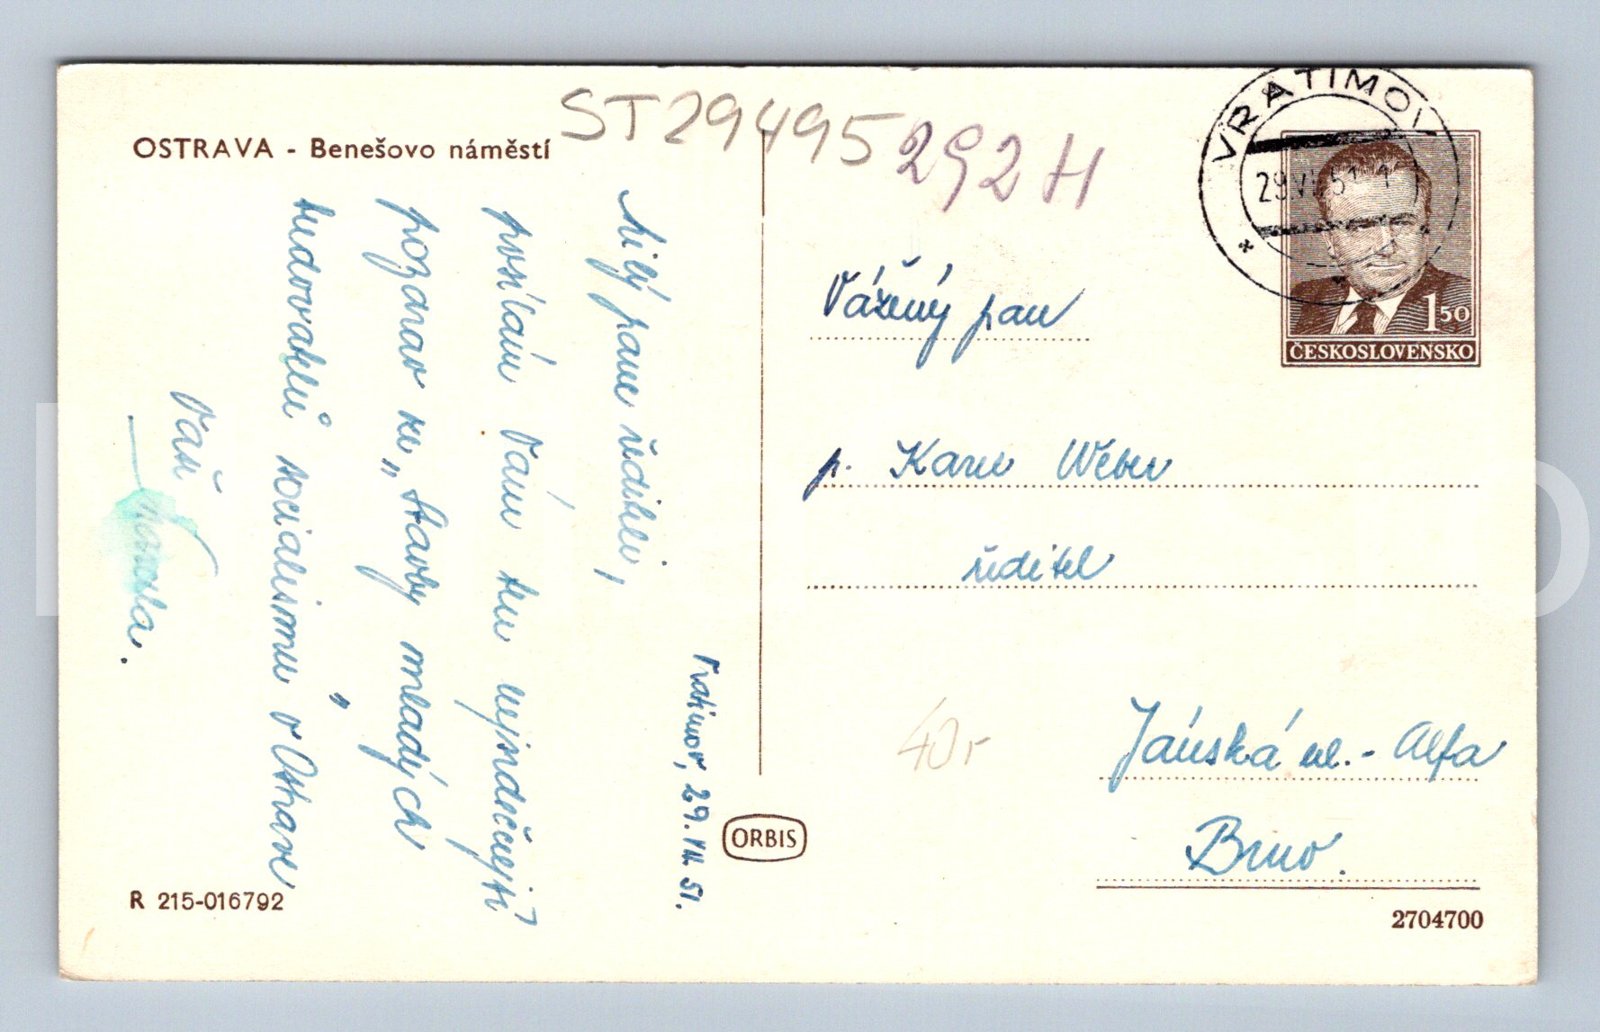 OSTRAVA - Benešovo náměstí
ST29495
292H
VRATIMOV
29.VII.51
1 50
ČESKOSLOVENSKO
Vratimov, 29. VII. 51.
Milý pane řediteli,
posílám Vám ten nejsrdečnější
pozdrav ze „Stavby mladých
budovatelů socialismu" v Ostravě
Váš
Vážený pan
p. Karel Weber
ředitel
Jánská ul. - Alfa
Brno.
40,-
ORBIS
R 215-016792
2704700